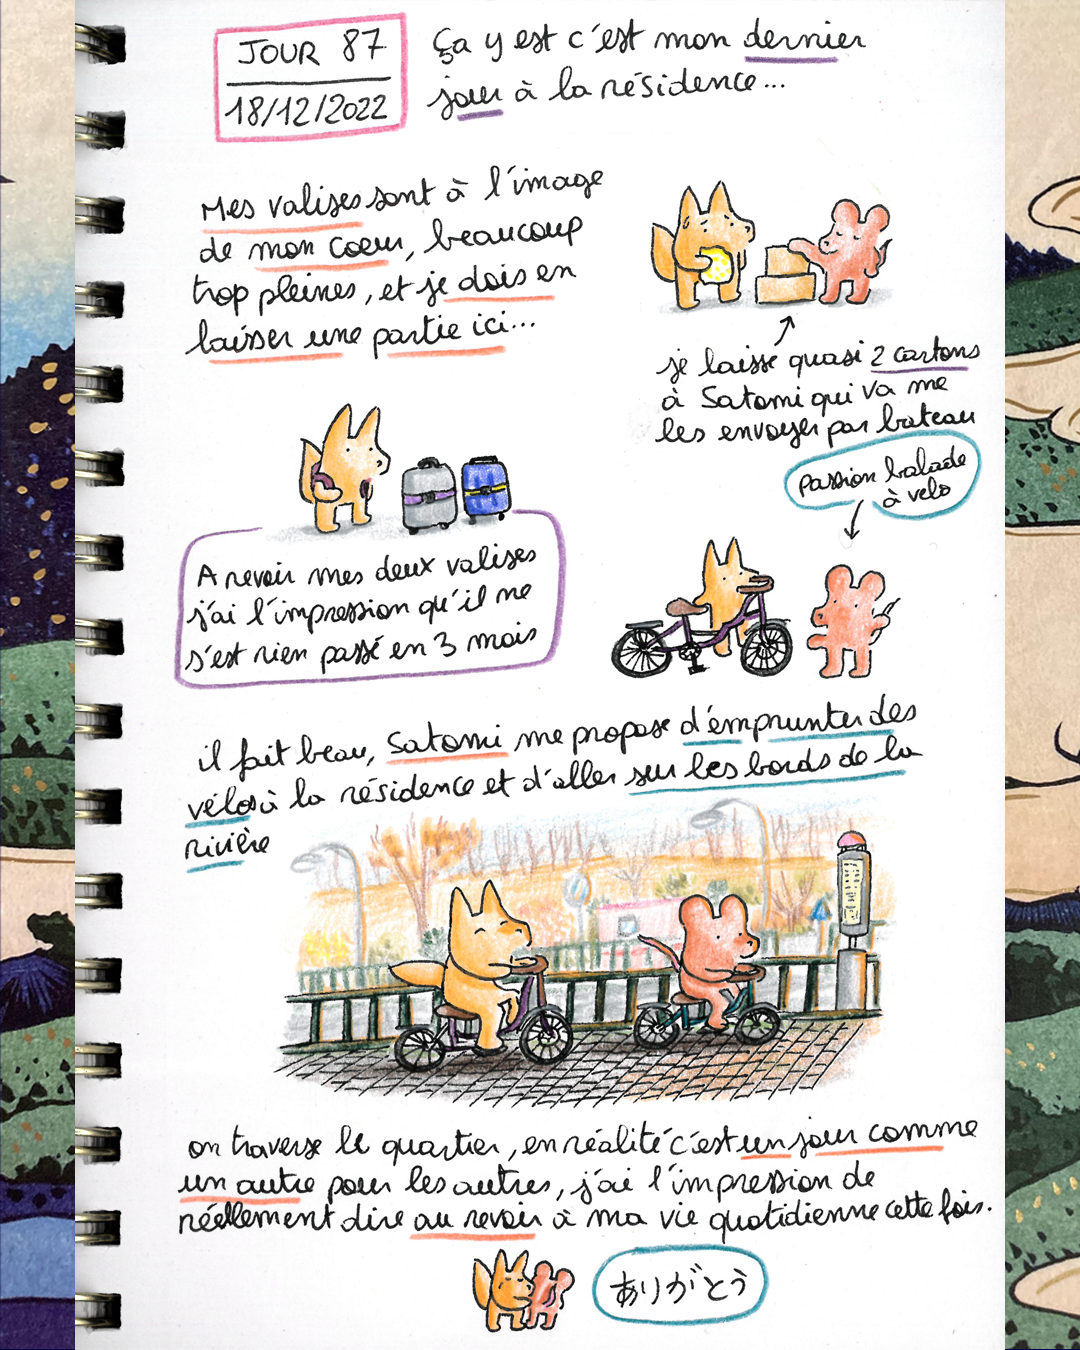 JOUR 87
18/12/2022
Ça y est c'est mon dernier
jour à la résidence...
Mes valises sont à l'image
de mon coeur, beaucoup
trop pleines, et je dois en
laisser une partie ici...
je laisse quasi 2 cartons
à Satomi qui va me
les envoyer par bateau
passion balade
à velo
A revoir mes deux valises
j'ai l'impression qu'il ne
s'est rien passé en 3 mois
il fait beau, Satomi me propose d'emprunter des
vélos à la résidence et d'aller sur les bords de la
rivière
on traverse le quartier, en réalité c'est un jour comme
un autre pour les autres, j'ai l'impression de
réellement dire au revoir à ma vie quotidienne cette fois.
ありがとう